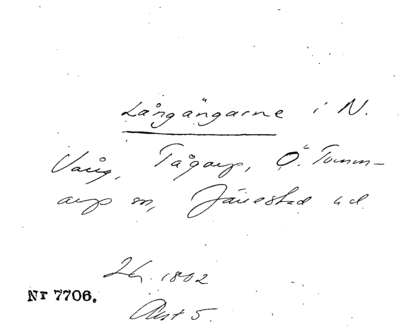 Långängarne i N.
Vång, Tågarp, Ö. Tomm-
arp sn, Järrestad hd.
1802
Nr 7706.
Akt 5.